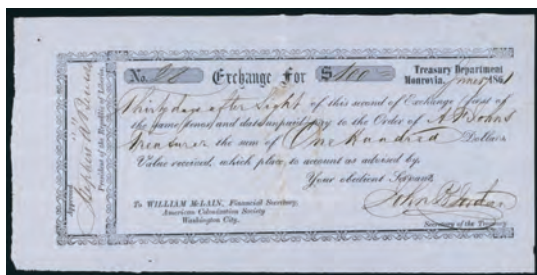 No. 20 Exchange For $100 Treasury Department
Monrovia, 1861
Thirty days after sight of this second of Exchange (first of
the same tenor and date unpaid) pay to the Order of A F Johns
Treasurer the sum of One Hundred Dollars
Value received, which place to account as advised by.
Your obedient Servant,
To WILLIAM McLAIN, Financial Secretary,
American Colonization Society
Washington City.
John B Jordan
Secretary of the Treasury
Approved
Stephen A Benson
President of the Republic of Liberia.